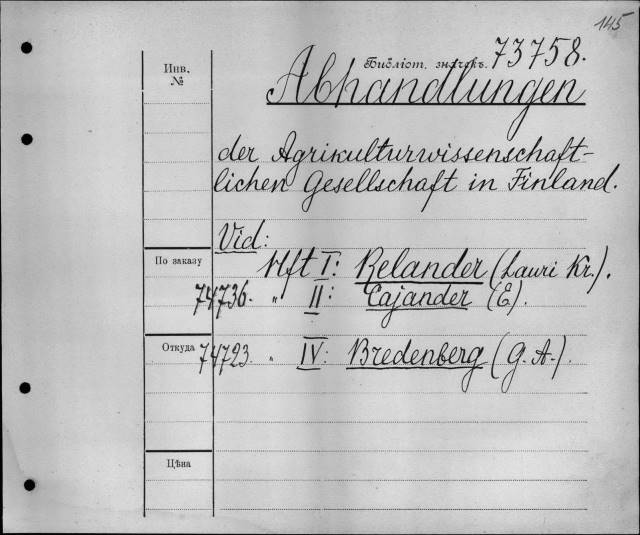 145
Библіот. значекъ. 73758.
Инв. №
Abhandlungen
der Agrikulturwissenschaft-
lichen Gesellschaft in Finland.
Vid:
По заказу
Hft I: Relander (Lauri Kr.).
74736. „ II: Cajander (E).
Откуда
74723. „ IV: Bredenberg (G. A.).
Цѣна